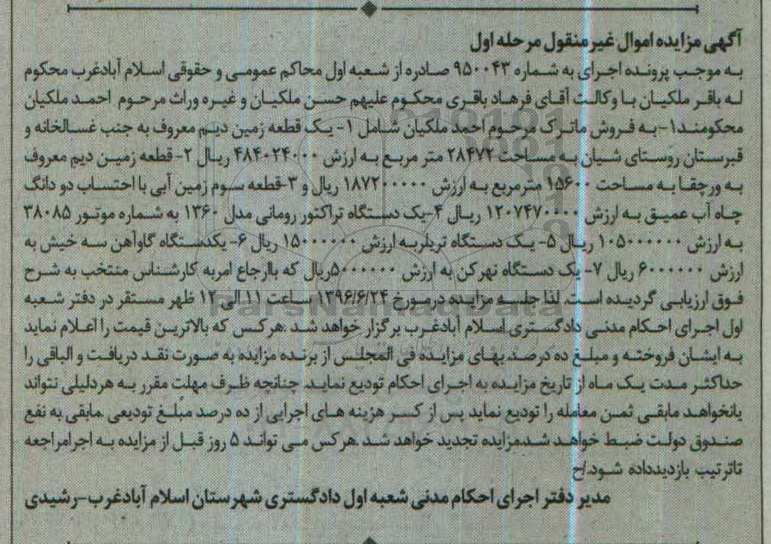 آگهی مزایده اموال غیرمنقول مرحله اول
به موجب پرونده اجرای به شماره ۹۵۰۰۴۳ صادره از شعبه اول محاکم عمومی و حقوقی اسلام آبادغرب محکوم
له باقر ملکیان با وکالت آقای فرهاد باقری محکوم علیهم حسن ملکیان و غیره وراث مرحوم احمد ملکیان
محکومند۱-به فروش ماترک مرحوم احمد ملکیان شامل ۱- یک قطعه زمین دیم معروف به جنب غسالخانه و
قبرستان روستای شیان به مساحت ۲۸۴۷۲ متر مربع به ارزش ۴۸۴۰۲۴۰۰۰ ریال ۲- قطعه زمین دیم معروف
به ورچقا به مساحت ۱۵۶۰۰ مترمربع به ارزش ۱۸۷۲۰۰۰۰۰ ریال و ۳-قطعه سوم زمین آبی با احتساب دو دانگ
چاه آب عمیق به ارزش ۱۲۰۷۴۷۰۰۰۰ ریال ۴-یک دستگاه تراکتور رومانی مدل ۱۳۶۰ به شماره موتور ۳۸۰۸۵
به ارزش ۱۰۵۰۰۰۰۰۰ ریال ۵- یک دستگاه تریلربه ارزش ۱۵۰۰۰۰۰۰ ریال ۶- یکدستگاه گاوآهن سه خیش به
ارزش ۶۰۰۰۰۰۰ ریال ۷- یک دستگاه نهرکن به ارزش ۵۰۰۰۰۰۰ریال که باارجاع امربه کارشناس منتخب به شرح
فوق ارزیابی گردیده است. لذا جلسه مزایده درمورخ ۱۳۹۶/۶/۲۴ ساعت ۱۱ الی ۱۲ ظهر مستقر در دفتر شعبه
اول اجرای احکام مدنی دادگستری اسلام آبادغرب برگزار خواهد شد .هرکس که بالاترین قیمت را اعلام نماید
به ایشان فروخته و مبلغ ده درصدبهای مزایده فی المجلس از برنده مزایده به صورت نقد دریافت و الباقی را
حداکثر مدت یک ماه از تاریخ مزایده به اجرای احکام تودیع نماید. چنانچه ظرف مهلت مقرر به هردلیلی نتواند
یانخواهد مابقی ثمن معامله را تودیع نماید پس از کسر هزینه های اجرایی از ده درصد مبلغ تودیعی ،مابقی به نفع
صندوق دولت ضبط خواهد شد.مزایده تجدید خواهد شد .هرکس می تواند ۵ روز قبل از مزایده به اجرامراجعه
تاترتیب بازدیدداده شود./ح
مدیر دفتر اجرای احکام مدنی شعبه اول دادگستری شهرستان اسلام آبادغرب-رشیدی
ParsNamadData